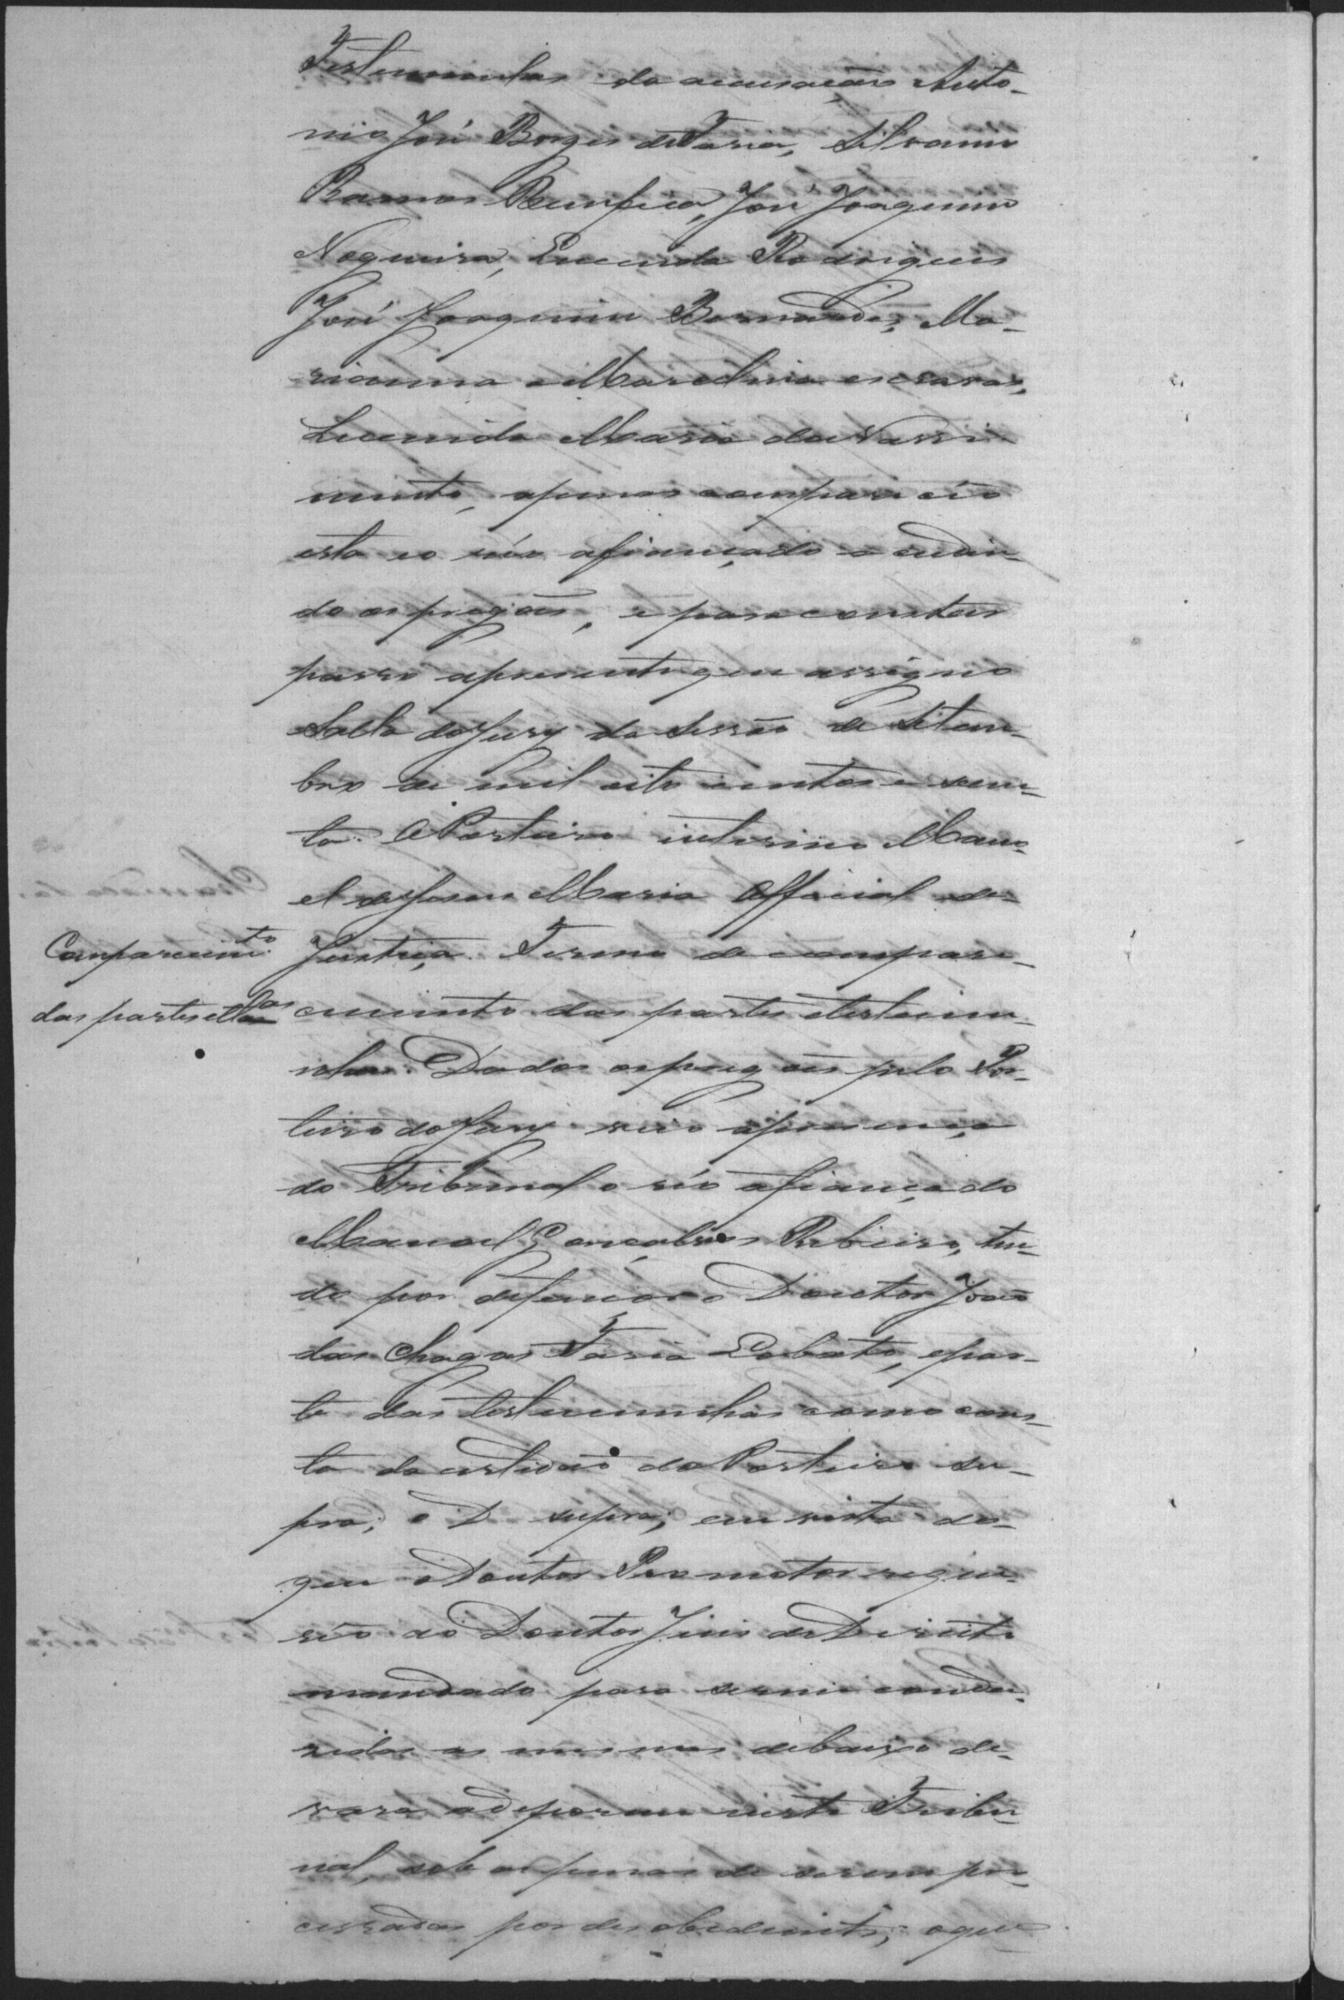 Testemunhas da acusação Anto-
nio José Borges de Faria, Silvanio
Ramos Bemfica, José Joaquim
Nogueira, Lucinda Rodrigues
José Joaquim Bernardes, Ma-
rianna e Marcelina escravas,
Lucinda Maria do Nassi-
mento, apenas compareceo
esta e o réo afiançado acudin-
do os pregões, e para constar
passo a presente que assigno
Salla do Jury da Sessão de Setem-
bro de mil oito centos e secen-
ta. O Porteiro interino Mano-
el de Jesus Maria Official de
Comparecimto Justiça. Termo de compare-
das partes e tas cimento das partes e testemu-
nhas. Dados os pregões pelo Por-
teiro do Jury veio a presença
do Tribunal o réo afiançado
Manoel Gonçalves Ribeiro, ten-
do por defensor o Doutor João
das Chagas Faria Lobato, e par-
te das testemunhas como cons-
ta da certidão do Porteiro su-
pra; e D. supra; em vista do
que o Doutor Promotor reque-
reo ao Doutor Juis de Direito
mandado para serem condu-
zidas as mesmas debaixo de
vara a deporem neste Tribu-
nal, sob as penas de serem pro-
cessadas por desobediente; o que